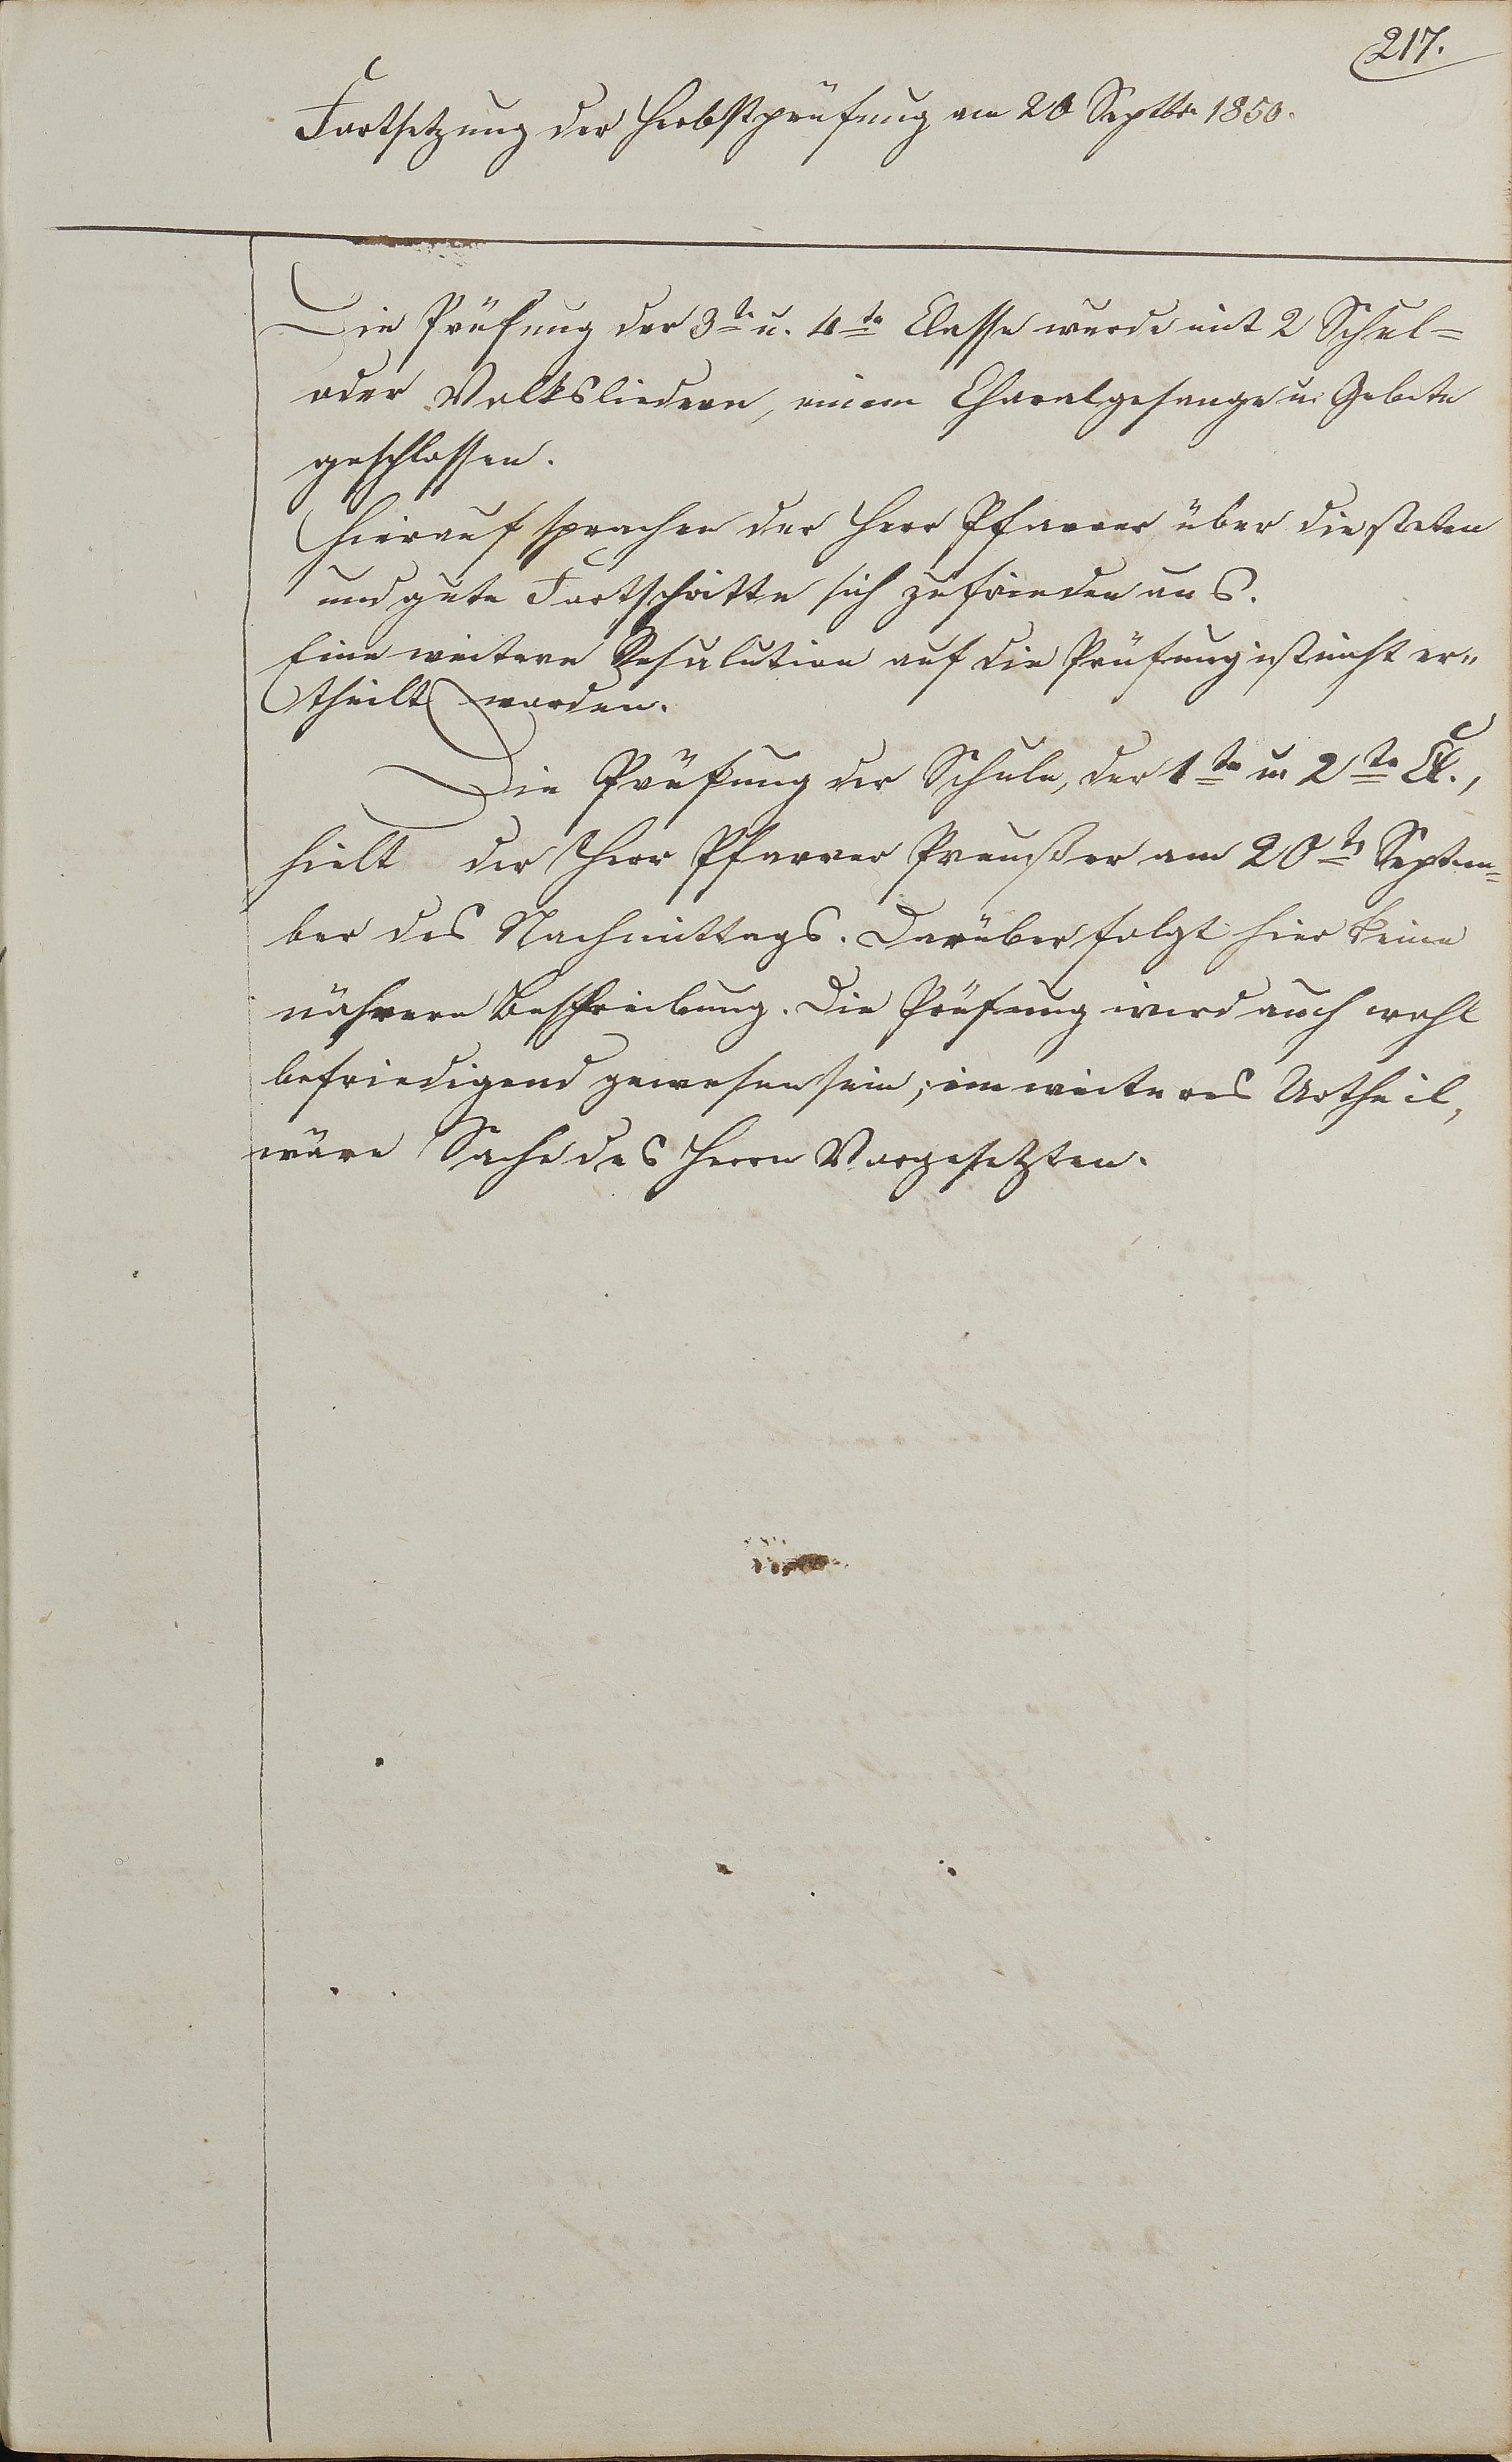 217.
Fortsetzung der Herbstprüfung am 20 Septbr. 1850.
Die Prüfung der 3te u. 4te Classe wurde mit 2 Schul=
oder Volksliedern, einem Choralgesange u. Gebete
geschlossen.
Hierauf sprachen der Herr Pfarrer über die steten
und gute Fortschritte sich zufrieden aus.
Eine weitere Resolution auf die Prüfung ist nicht er„
theilt worden.
Die Prüfung der Schule, der 1te u. 2te Cl.,
hielt der Herr Pfarrer Preußer am 20ts Septem=
ber des Nachmittags. Darüber folgt hier keine
nähere Beschreibung. Die Prüfung wird auch wohl
befriedigend gewesen sein; ein weiteres Urtheil,
wäre Sache des Herrn Vorgesetzten.